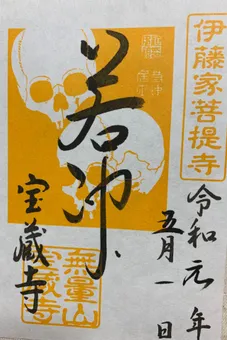 伊藤家菩提寺
令和元年
五月一日
若冲
宝蔵寺
無量山
宝蔵寺